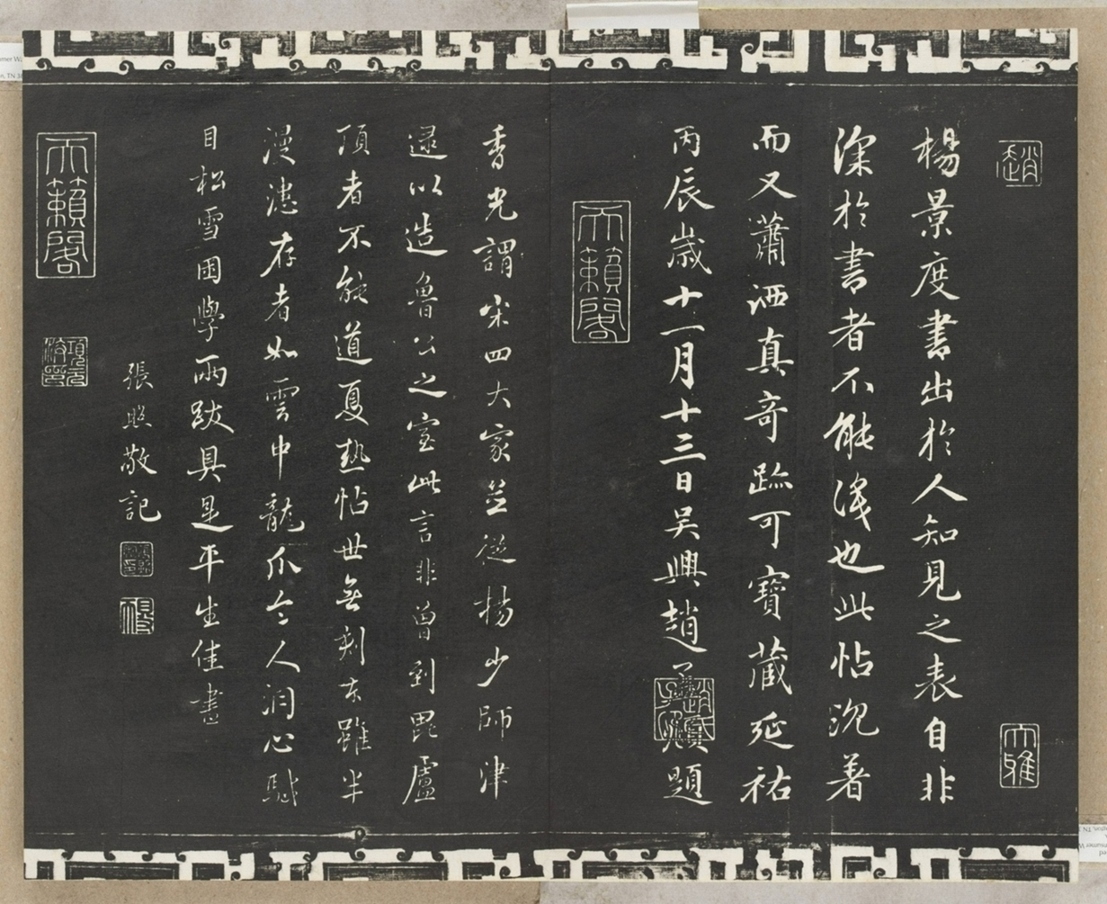 趙
大雅
楊景度書出於人知見之表自非
深於書者不能識也此帖沉著
而又蕭洒真奇跡可寶藏延祐
丙辰歲十一月十三日吳興趙孟頫題
趙氏子昂
天籟閣
香光謂宋四大家並從楊少師津
逮以造魯公之室此言非曾到毘盧
頂者不能道夏熱帖世無刻本雖半
漫漶存者如雲中龍爪令人洞心駴
目松雪困學兩跋具是平生佳書
張照敬記
天籟閣
項元汴印